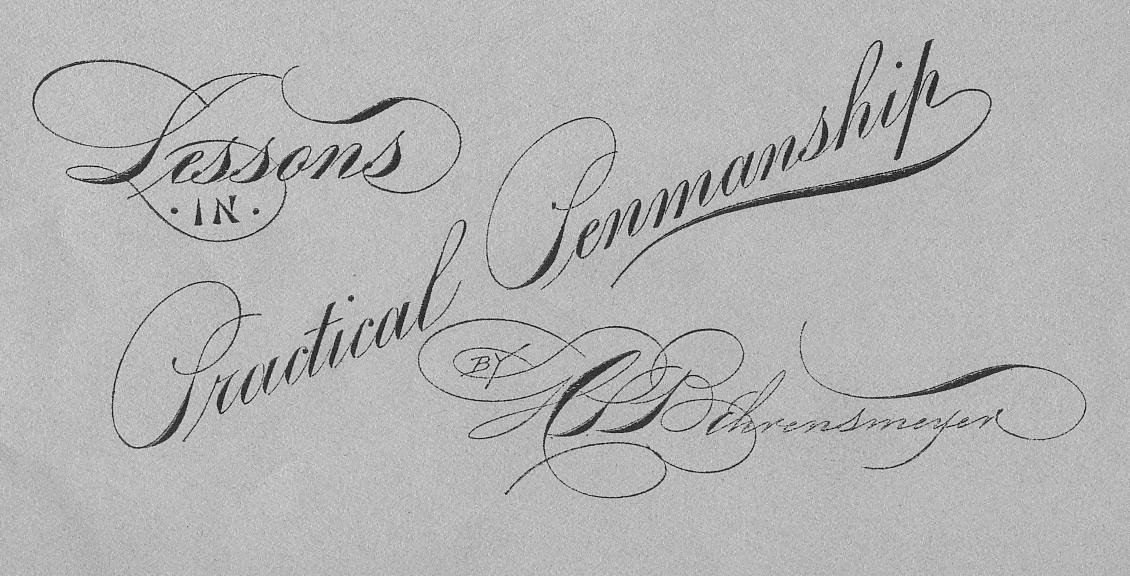 Lessons
· IN ·
Practical Penmanship
BY H. P. Behrensmeyer